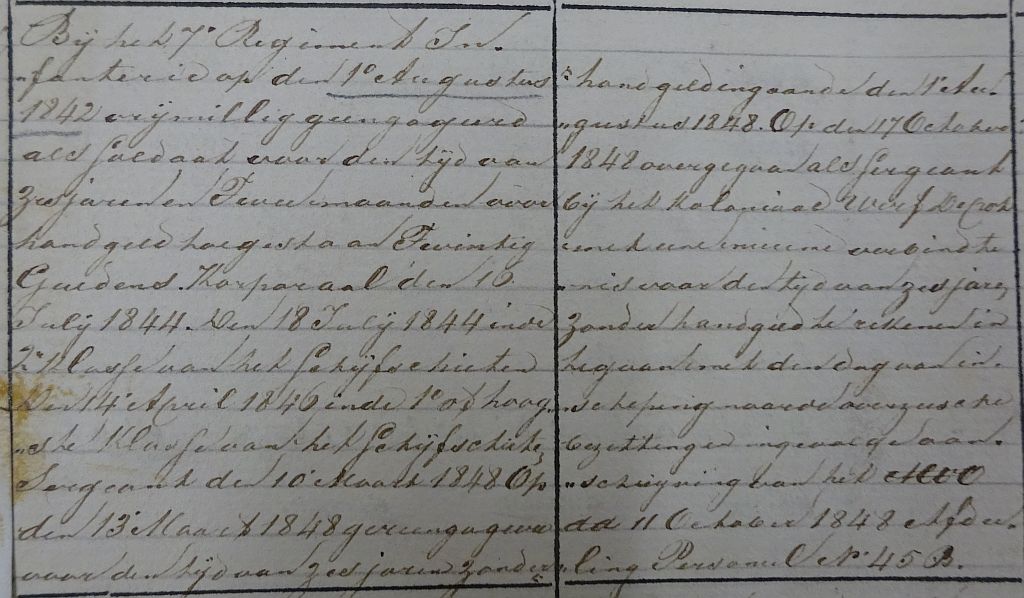 Bij het 7e Regiment In-
"fanterie op den 1e Augustus
1842 vrijwillig geengageerd
als Soldaat voor den tijd van
zes jaren en Twee maanden voor
handgeld toegestaan Twintig
Guldens. Korporaal den 16
July 1844. Den 18 July 1844 in de
2e Klasse van het Schijfschieten
Den 14 April 1846 in de 1e of hoog-
"ste Klasse van het Schijfschieten
Sergeant den 10 Maart 1848 Op
den 13 Maart 1848 gereengageerd
voor den tijd van zes jaren zonder
handgeld ingaande den 1e Au-
"gustus 1848. Op den 17 October
1848 overgegaan als Sergeant
bij het Koloniaal Werf Depot
met eene nieuwe verbindte-
"nis voor den tijd van zes jaren
zonder handgeld te rekenen in
te gaan met den dag van in-
"scheping naar de overzeesche
bezittingen ingevolge aan-
"schrijving van het
dd 11 October 1848 Afdee-
"ling Personeel No 45 B.